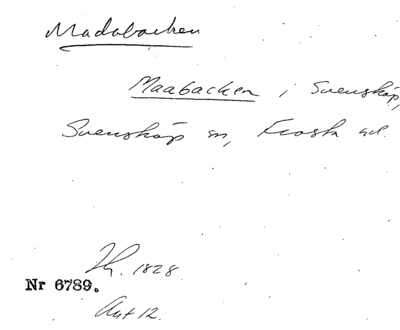 Madabacken
Maabacken i Svensköp,
Svensköp sn, Frosta hd.
1828
Nr 6789.
Akt 12.